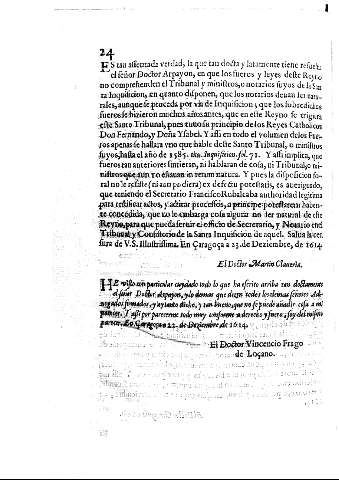 24
ES tan assentada verdad, la que tan docta y latamente tiene resuelta
el señor Doctor Arpayon, en que los fueros y leyes deste Reyno
no comprehenden el Tribunal y ministros, o notarios suyos de la San
ta Inquisicion, en quanto disponen, que los notarios devan ser natu-
rales, aunque se proceda por via de Inquisicion, y que los sobredichos
fueros se hizieron muchos años antes, que en este Reyno se erigera
este Santo Tribunal, pues tuvo su principio de los Reyes Catholicos
Don Fernando, y Doña Ysabel. Y assi en todo el volumen de los Fue-
ros apenas se hallara uno que hable deste Santo Tribunal, o ministros
suyos, hasta el año de 1585. tit. Inquisicion. fol. 71. Y assi implica, que
fueros tan anteriores sintieran, ni hablaran de cosa, ni Tribunal, o mi-
nistros que aun no estauan in rerum natura. Y pues la disposicion fo-
ral no le resiste (ni aun pudiera) ex defectu potestatis, es aueriguado,
que teniendo el Secretario Francisco Rubalcaba authoridad legitima
para testificar actos, y actitar processos, a principe potestatem haben-
te concedida, que no le embarga cosa alguna no ser natural de este
Reyno, para que pueda seruir el officio de Secretario, y Notario en el
Tribunal y Consistorio de la Santa Inquisicion de aquel. Salua la cen-
sura de V.S. Illustrissima. En Çaragoça a 23. de Deziembre, de 1614.
El Doctor Martin Claueria.
HE visto con particular cuydado todo lo que ha escrito arriba tan doctamente
el señor Doctor Arpayon, y lo demas que dizen todos los demas señores Ad-
uogados firmados, y ay tanto dicho, y tan bueno, que no se puede añadir cosa a mi
parecer. Y assi por parecerme todo muy conforme a derecho y fuero, soy del mismo
parecer. En Çaragoça 23. de Deziembre de 1614.
El Doctor Vincencio Frago
de Loçano.